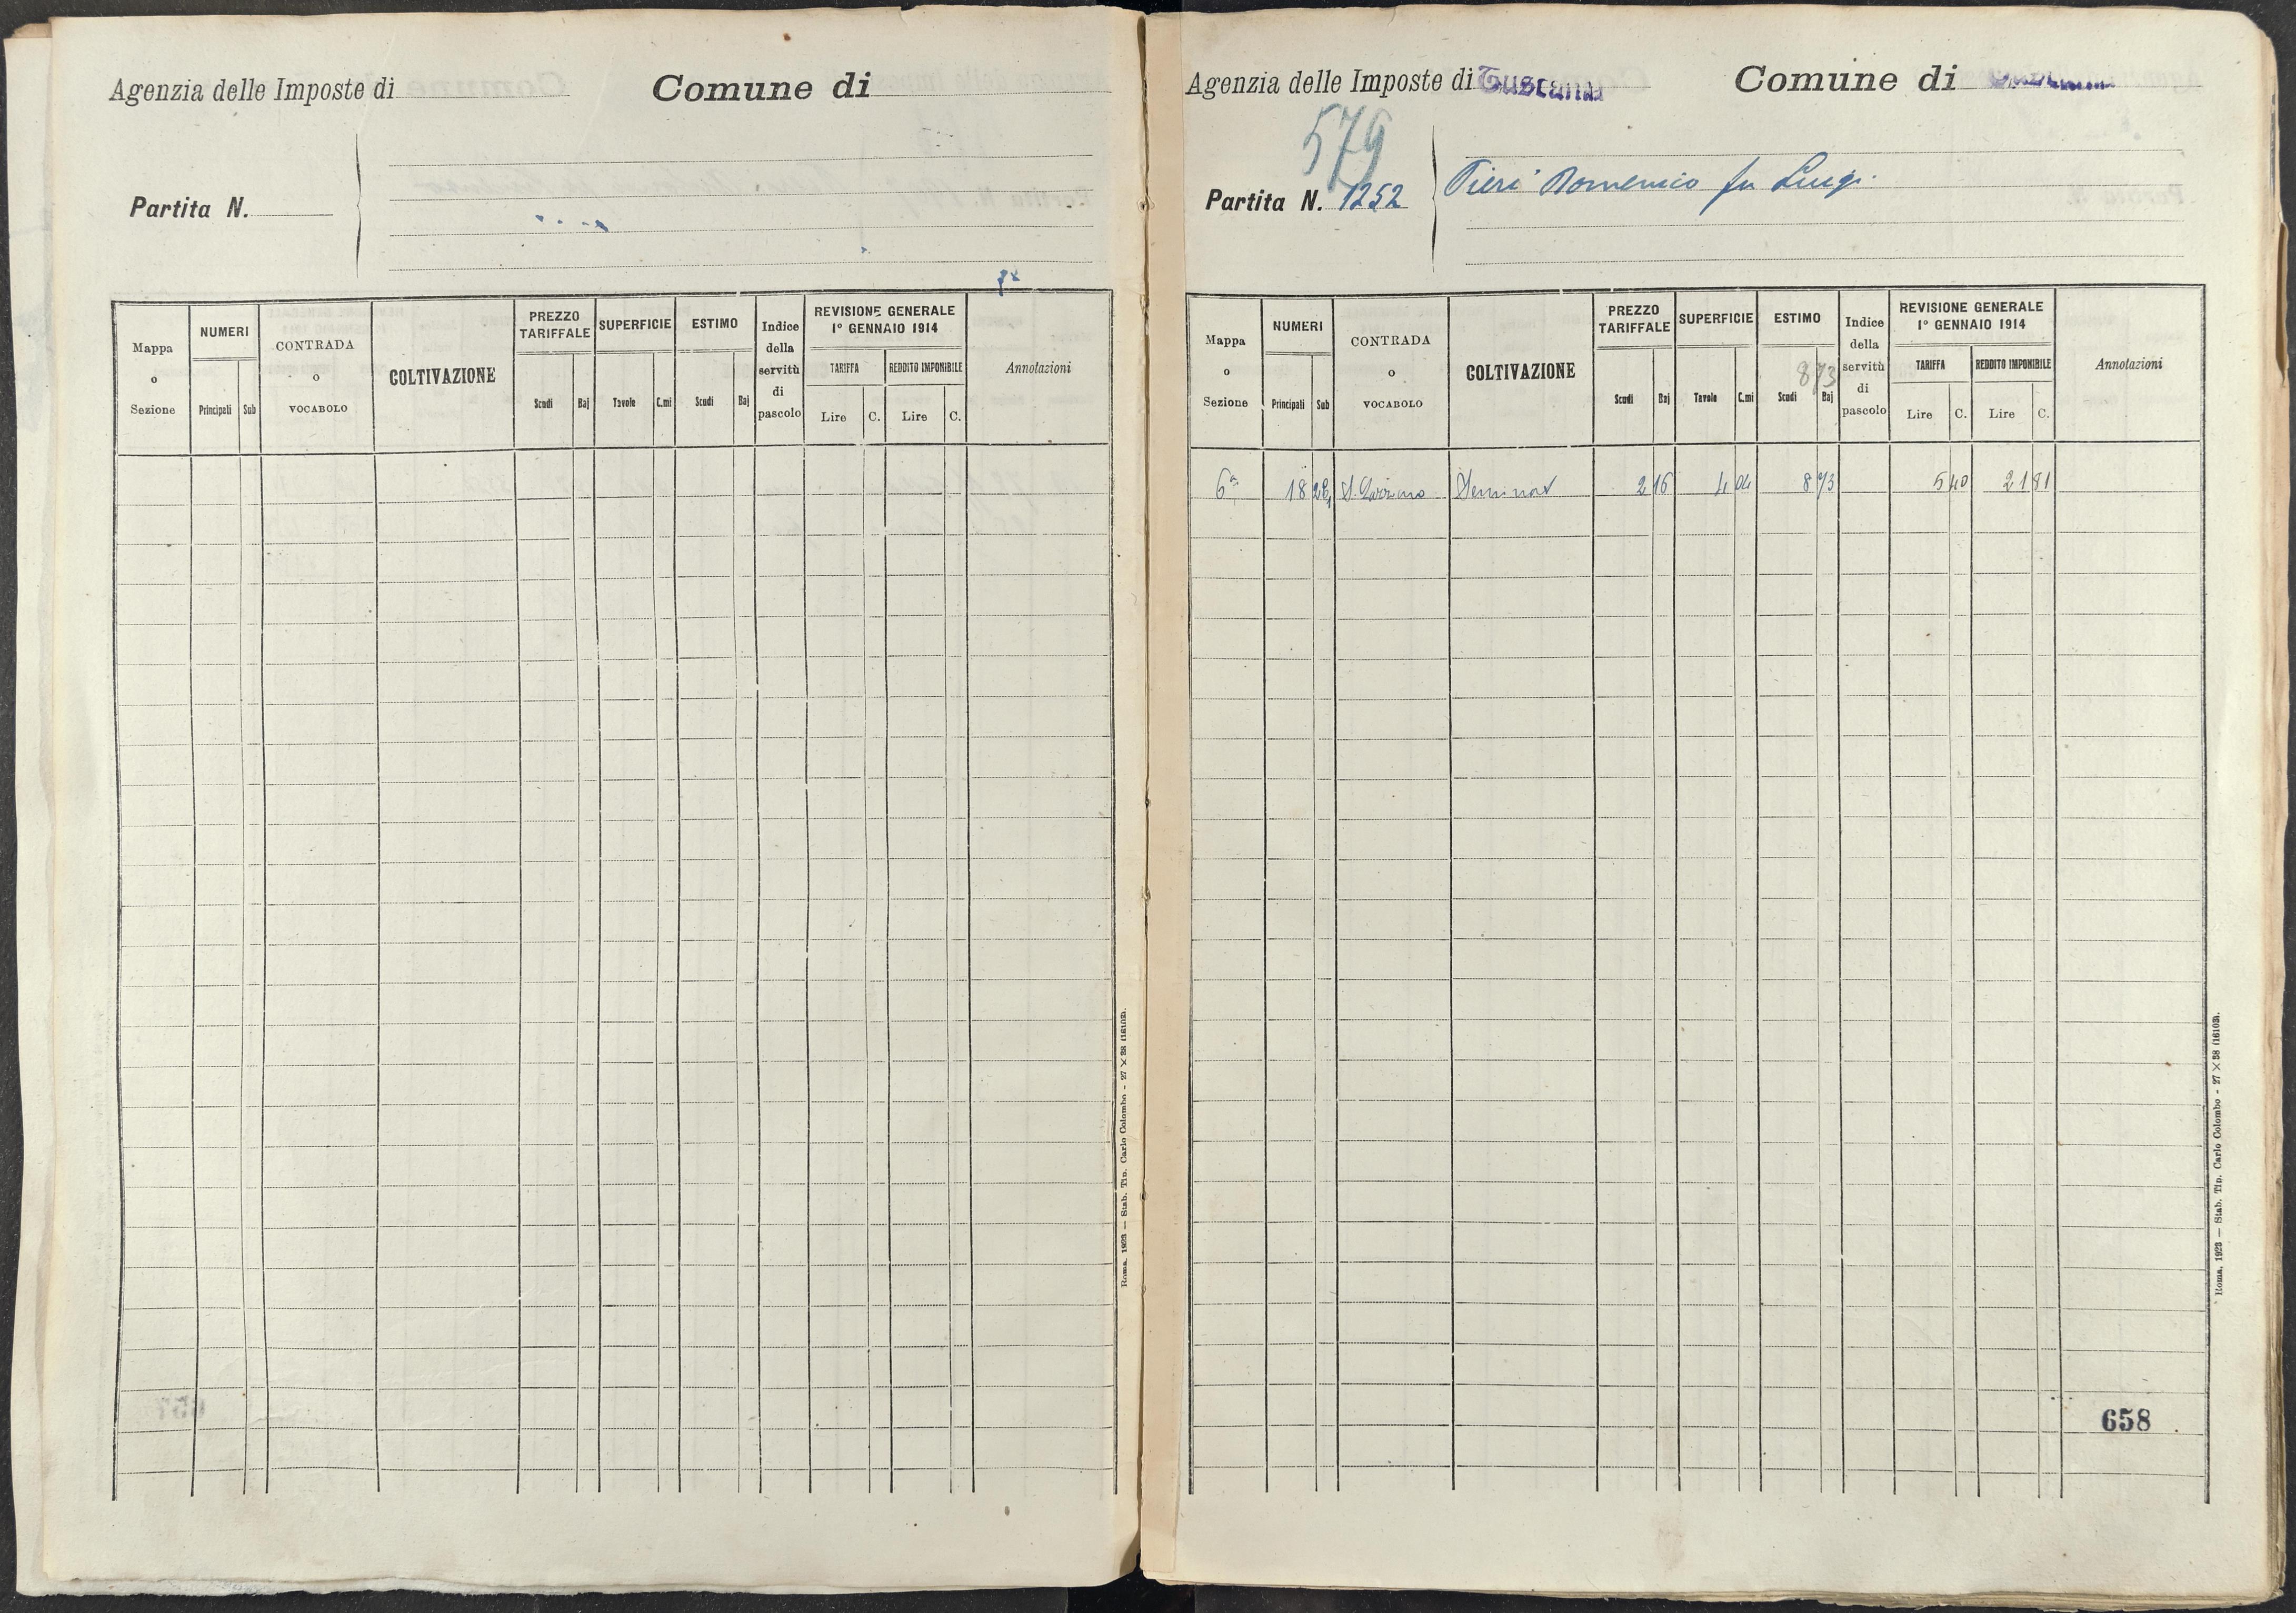 Agenzia delle Imposte di
Comune di
Partita N.
Mappa o Sezione
NUMERI
Principali
Sub
CONTRADA o VOCABOLO
COLTIVAZIONE
PREZZO TARIFFALE
Scudi
Baj
SUPERFICIE
Tavole
C.mi
ESTIMO
Scudi
Baj
Indice della servitù di pascolo
REVISIONE GENERALE
1º GENNAIO 1914
TARIFFA
REDDITO IMPONIBILE
Lire
C.
Lire
C.
Annotazioni
Roma, 1923 — Stab. Tip. Carlo Colombo - 27 × 38 (16103).
Agenzia delle Imposte di Tuscania
Comune di
579
Partita N. 1252
Pieri Domenico fu Luigi
Mappa o Sezione
NUMERI
Principali
Sub
CONTRADA o VOCABOLO
COLTIVAZIONE
PREZZO TARIFFALE
Scudi
Baj
SUPERFICIE
Tavole
C.mi
ESTIMO
873
Scudi
Baj
Indice della servitù di pascolo
REVISIONE GENERALE
1º GENNAIO 1914
TARIFFA
REDDITO IMPONIBILE
Lire
C.
Lire
C.
Annotazioni
6ª 18 S. Seminat 2 16 4 04 8 73 5 40 21 81
658
Roma, 1923 — Stab. Tip. Carlo Colombo - 27 × 38 (16103).